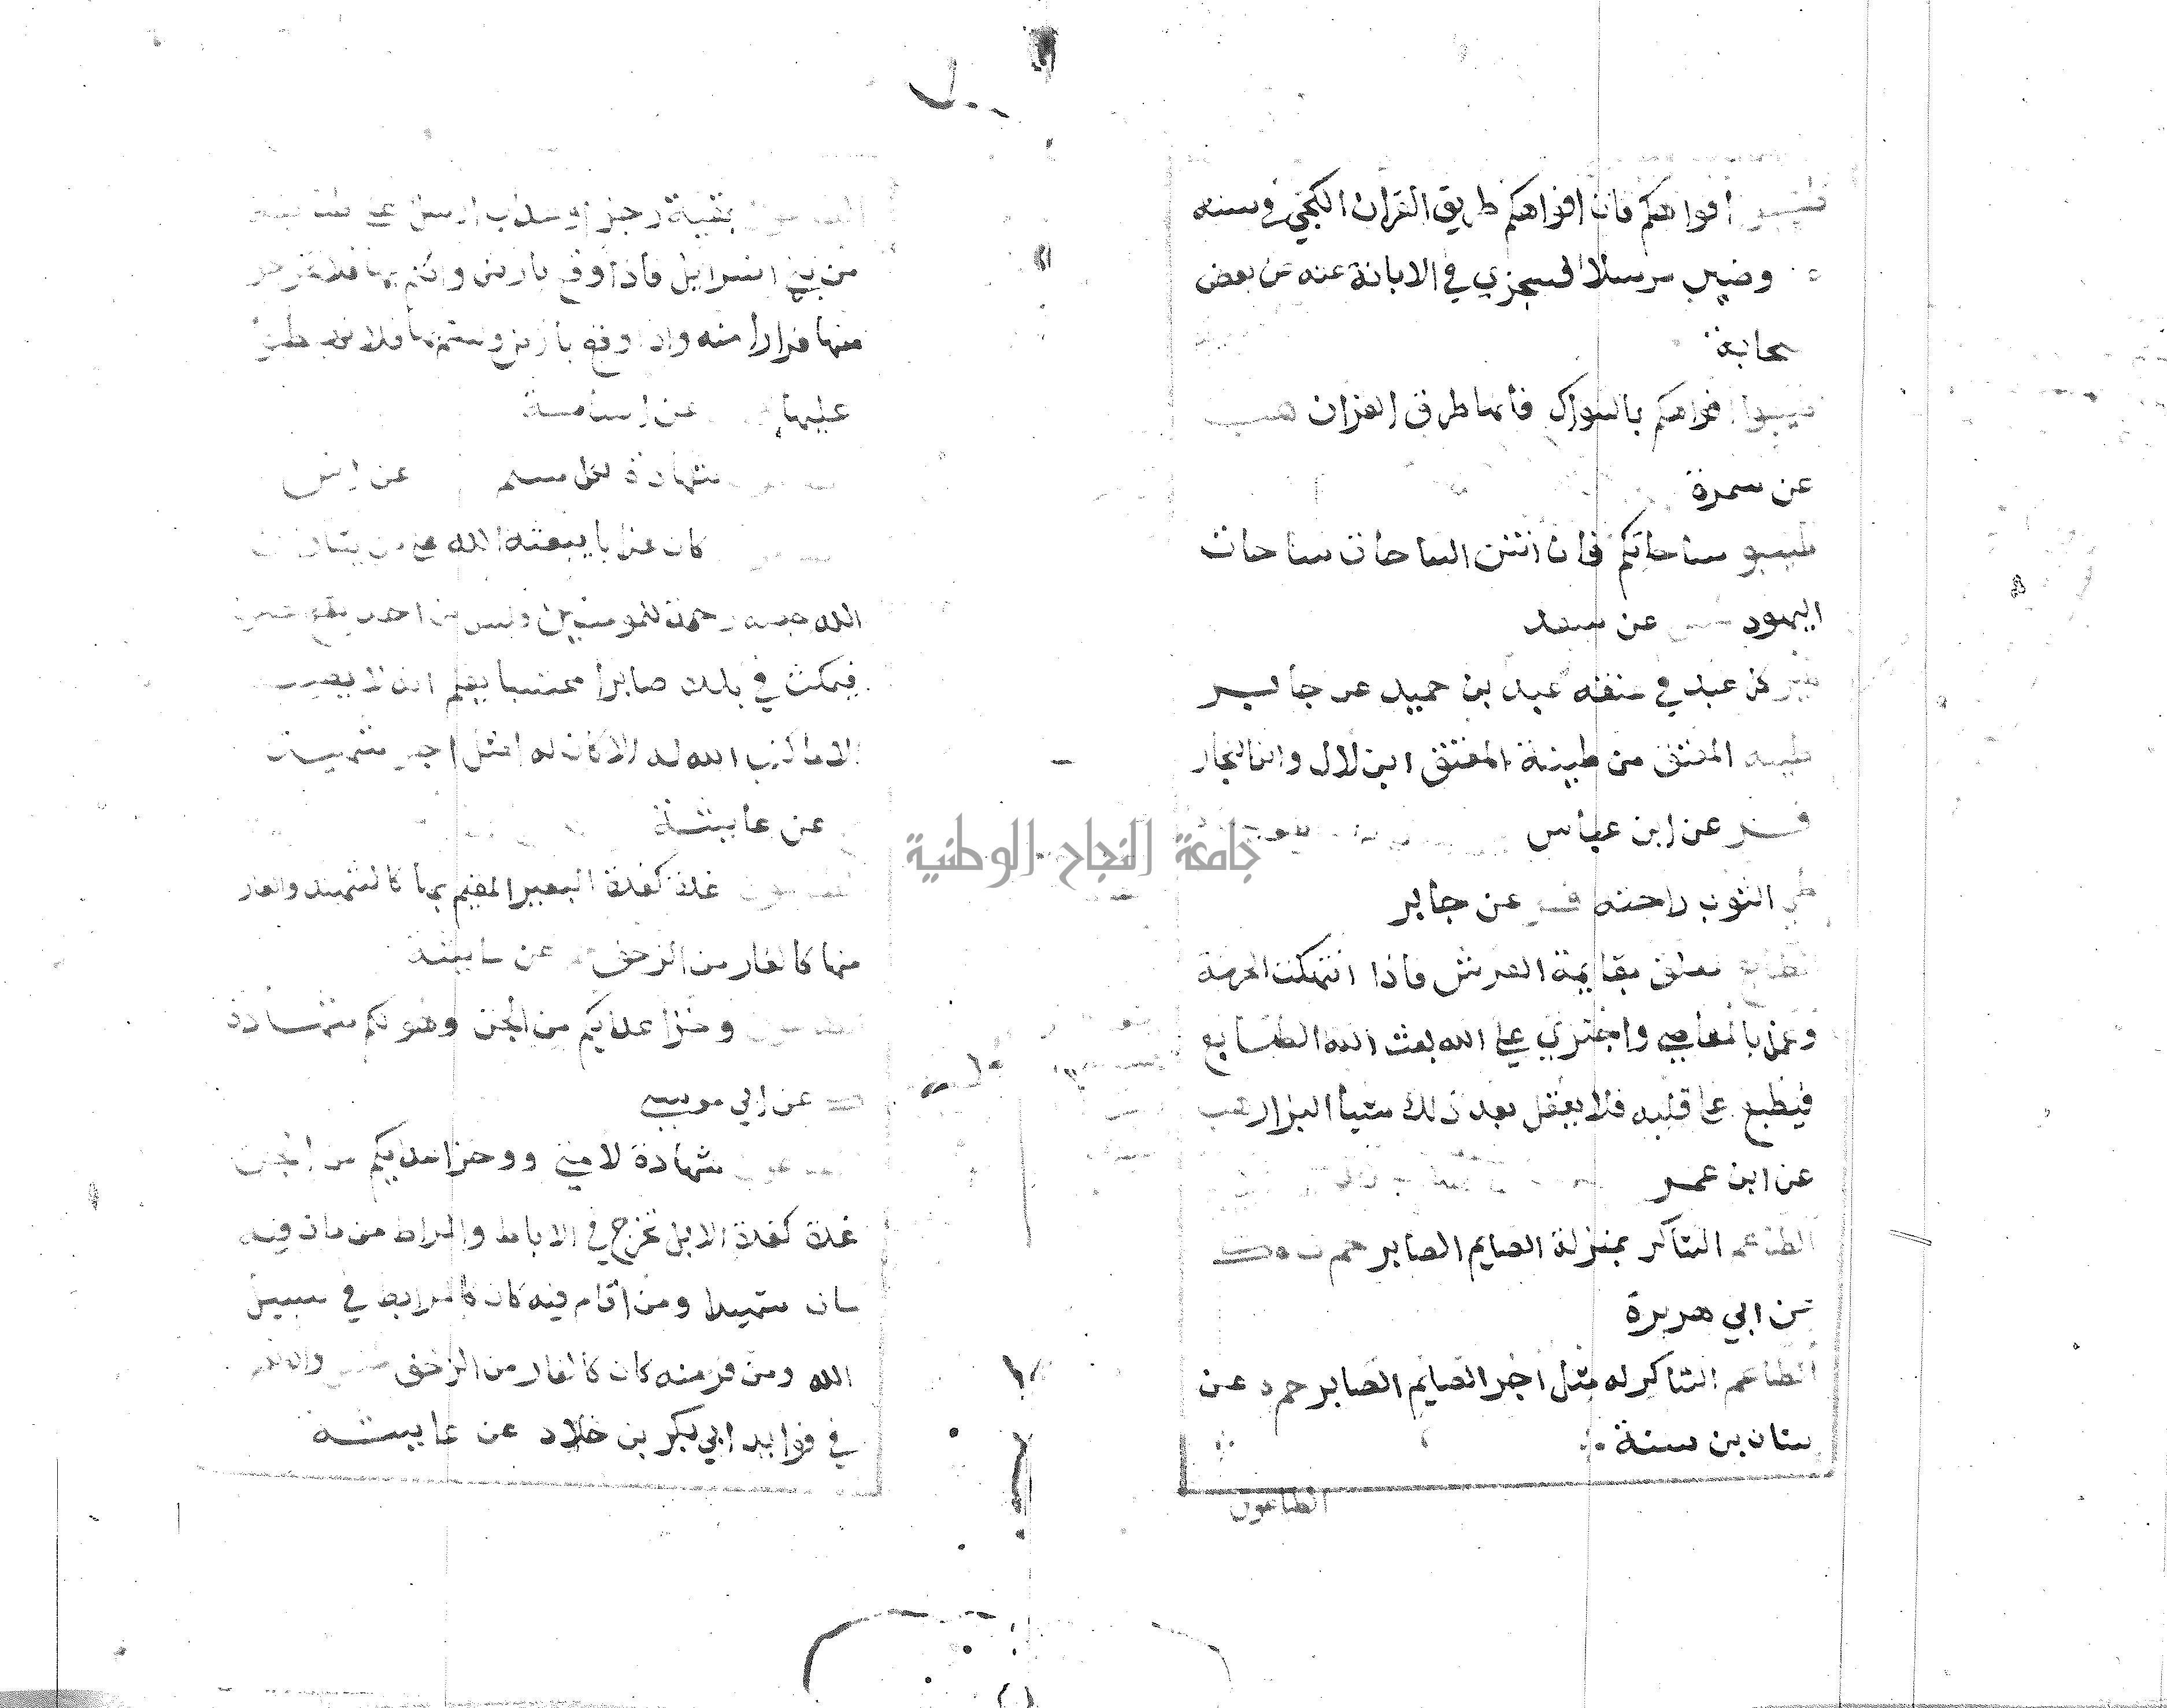 طيبوا افواهكم فان افواهكم طريق القران الكجي في سننه
وضين مرسلا السجزي في الابانة عنه عن بعض
صحابة
طيبوا افواهكم بالسواك فانها طرق القران هب
عن سمرة
طيبو ساحاتكم فان انتن الساحات ساحات
اليهود طس عن سعد
طير كل عبد في عنقه عبد بن حميد عن جابر
طينه المعتق من طينة المعتق ابن لال وابن النجار
فر عن ابن عباس
طي الثوب راحته فر عن جابر
الطابع معلق بقايمة العرش فاذا انتهكت الحرمة
وعمل بالمعاصي واجتري على الله بعث الله الطابع
فيطبع على قلبه فلا يعقل بعد ذلك شيأ البزار هب
عن ابن عمر
الطاعم الشاكر بمنزلة الصايم الصابر حم ت ه ك
عن ابي هريرة
الطاعم الشاكر له مثل اجر الصايم الصابر حم ه عن
سنان بن سنة
الطاعون
الطاعون بقية رجز او عذاب ارسل على طايفة
من بني اسرائيل فاذا وقع بارض وانتم بها فلا تخرجو
منها فرارا منه واذا وقع بارض ولستم بها فلا تهبطوا
عليها عن اسامة
الطاعون شهادة لكل مسلم عن انس
الطاعون كان عذابا يبعثه الله على من يشاء وان
الله جعله رحمة للمومنين وليس من احد يقع الطاعون
فيمكث في بلده صابرا محتسبا يعلم انه لا يصيبه
الا ما كتب الله له الا كان له مثل اجر شهيد
عن عايشة
الطاعون غدة كغدة البعير المقيم بها كالشهيد والفار
منها كالفار من الزحف عن عايشة
الطاعون وخز اعدايكم من الجن وهو لكم شهادة
ك عن ابي موسى
الطاعون شهادة لامتي ووخز اعدايكم من الجن
غدة كغدة الابل تخرج في الاباط والمراق من مات فيه
مات شهيدا ومن اقام فيه كان كالمرابط في سبيل
الله ومن فر منه كان كالفار من الزحف طس
في فوايد ابي بكر بن خلاد عن عايشة
جامعة النجاح الوطنية